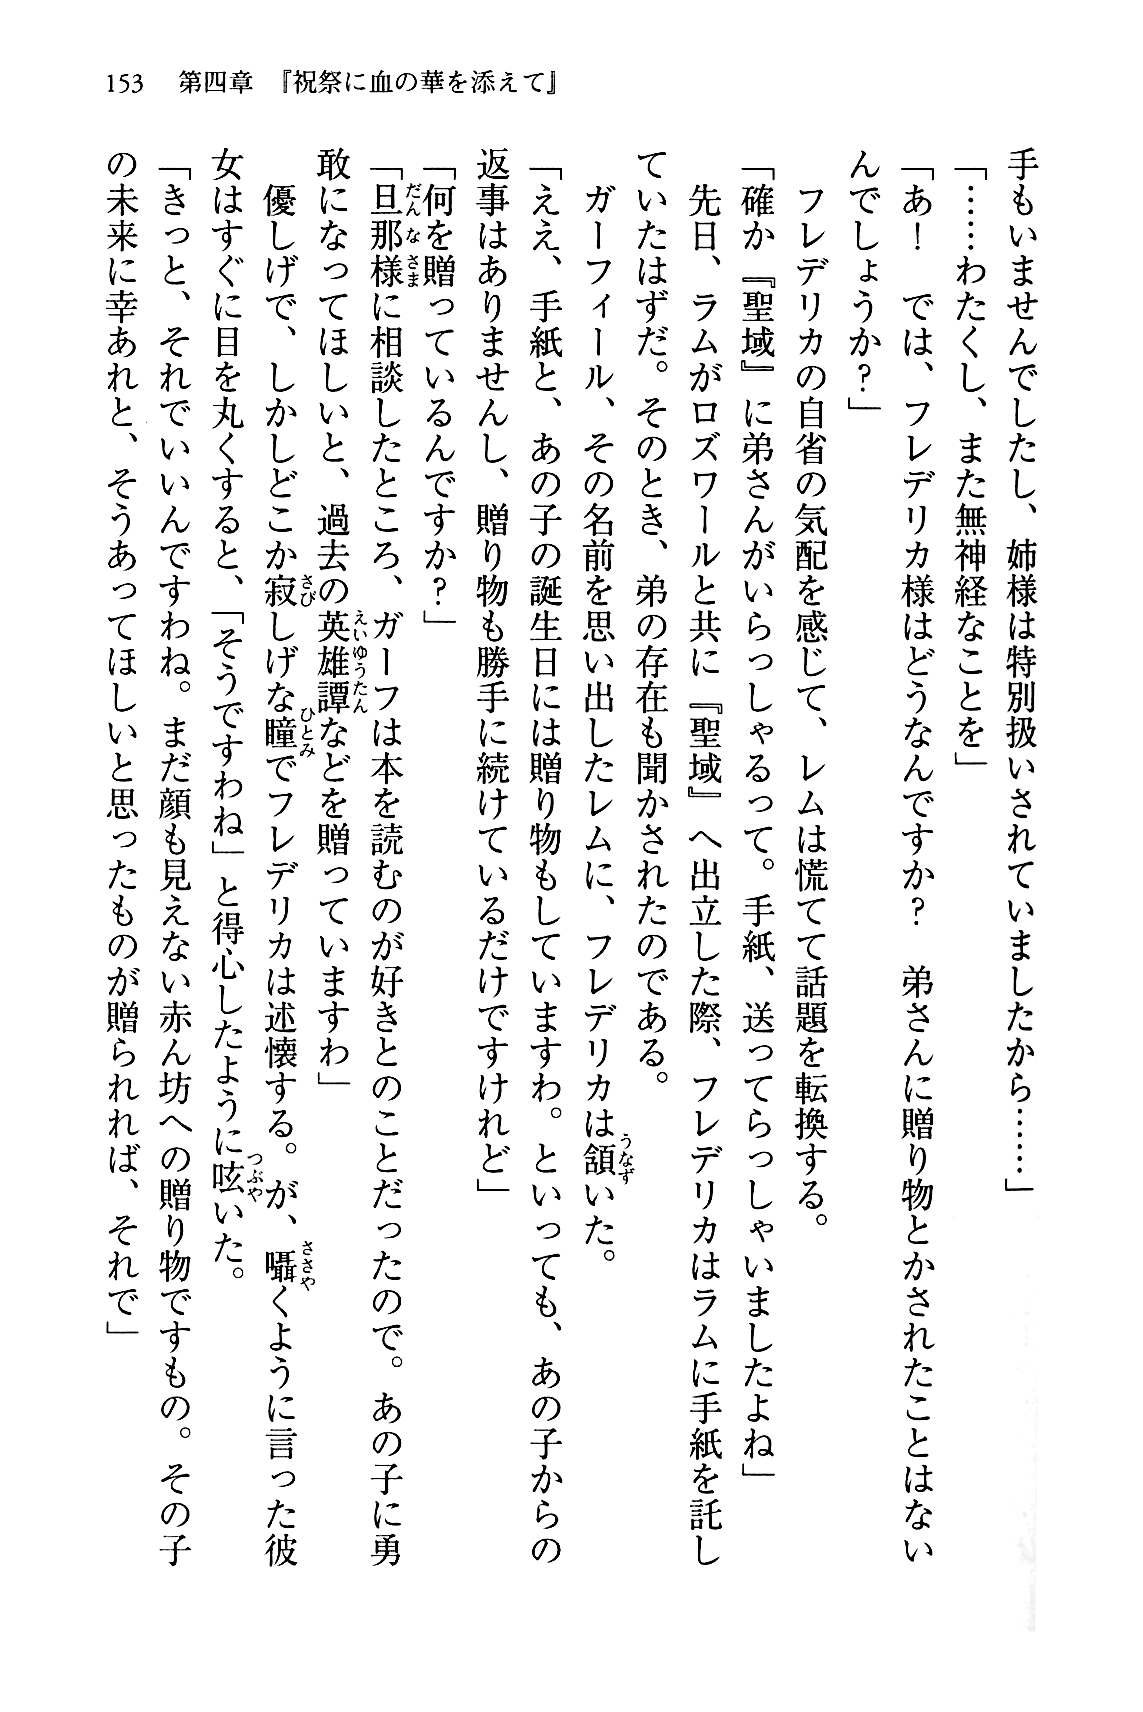 153　第四章　『祝祭に血の華を添えて』
手もいませんでしたし、姉様は特別扱いされていましたから……」
「……わたくし、また無神経なことを」
「あ！　では、フレデリカ様はどうなんですか？　弟さんに贈り物とかされたことはない
んでしょうか？」
　フレデリカの自省の気配を感じて、レムは慌てて話題を転換する。
「確か『聖域』に弟さんがいらっしゃるって。手紙、送ってらっしゃいましたよね」
　先日、ラムがロズワールと共に『聖域』へ出立した際、フレデリカはラムに手紙を託し
ていたはずだ。そのとき、弟の存在も聞かされたのである。
　ガーフィール、その名前を思い出したレムに、フレデリカは頷いた。
「ええ、手紙と、あの子の誕生日には贈り物もしていますわ。といっても、あの子からの
返事はありませんし、贈り物も勝手に続けているだけですけれど」
「何を贈っているんですか？」
「旦那様に相談したところ、ガーフは本を読むのが好きとのことだったので。あの子に勇
敢になってほしいと、過去の英雄譚などを贈っていますわ」
　優しげで、しかしどこか寂しげな瞳でフレデリカは述懐する。が、囁くように言った彼
女はすぐに目を丸くすると、「そうですわね」と得心したように呟いた。
「きっと、それでいいんですわね。まだ顔も見えない赤ん坊への贈り物ですもの。その子
の未来に幸あれと、そうあってほしいと思ったものが贈られれば、それで」